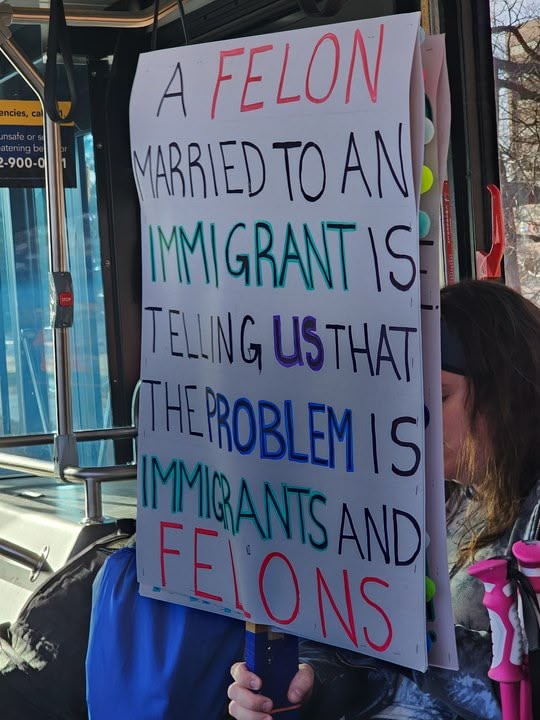 A FELON
MARRIED TO AN
IMMIGRANT IS
TELLING US THAT
THE PROBLEM IS
IMMIGRANTS AND
FELONS
encies, cal
unsafe or s
eatening be
2-900-0